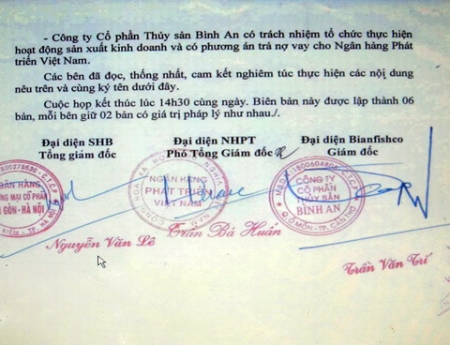 - Công ty Cổ phần Thủy sản Bình An có trách nhiệm tổ chức thực hiện
hoạt động sản xuất kinh doanh và có phương án trả nợ vay cho Ngân hàng Phát
triển Việt Nam.
Các bên đã đọc, thống nhất, cam kết nghiêm túc thực hiện các nội dung
nêu trên và cùng ký tên dưới đây.
Cuộc họp kết thúc lúc 14h30 cùng ngày. Biên bản này được lập thành 06
bản, mỗi bên giữ 02 bản có giá trị pháp lý như nhau./.
Đại diện SHB Đại diện NHPT Đại diện Bianfishco
Tổng giám đốc Phó Tổng Giám đốc Giám đốc
NGÂN HÀNG
PHÁT TRIỂN
VIỆT NAM
CÔNG TY
CỔ PHẦN
THỦY SẢN
BÌNH AN
Q.Ô MÔN - TP. CẦN THƠ
Nguyễn Văn Lê
Trần Bá Huấn
Trần Văn Trí